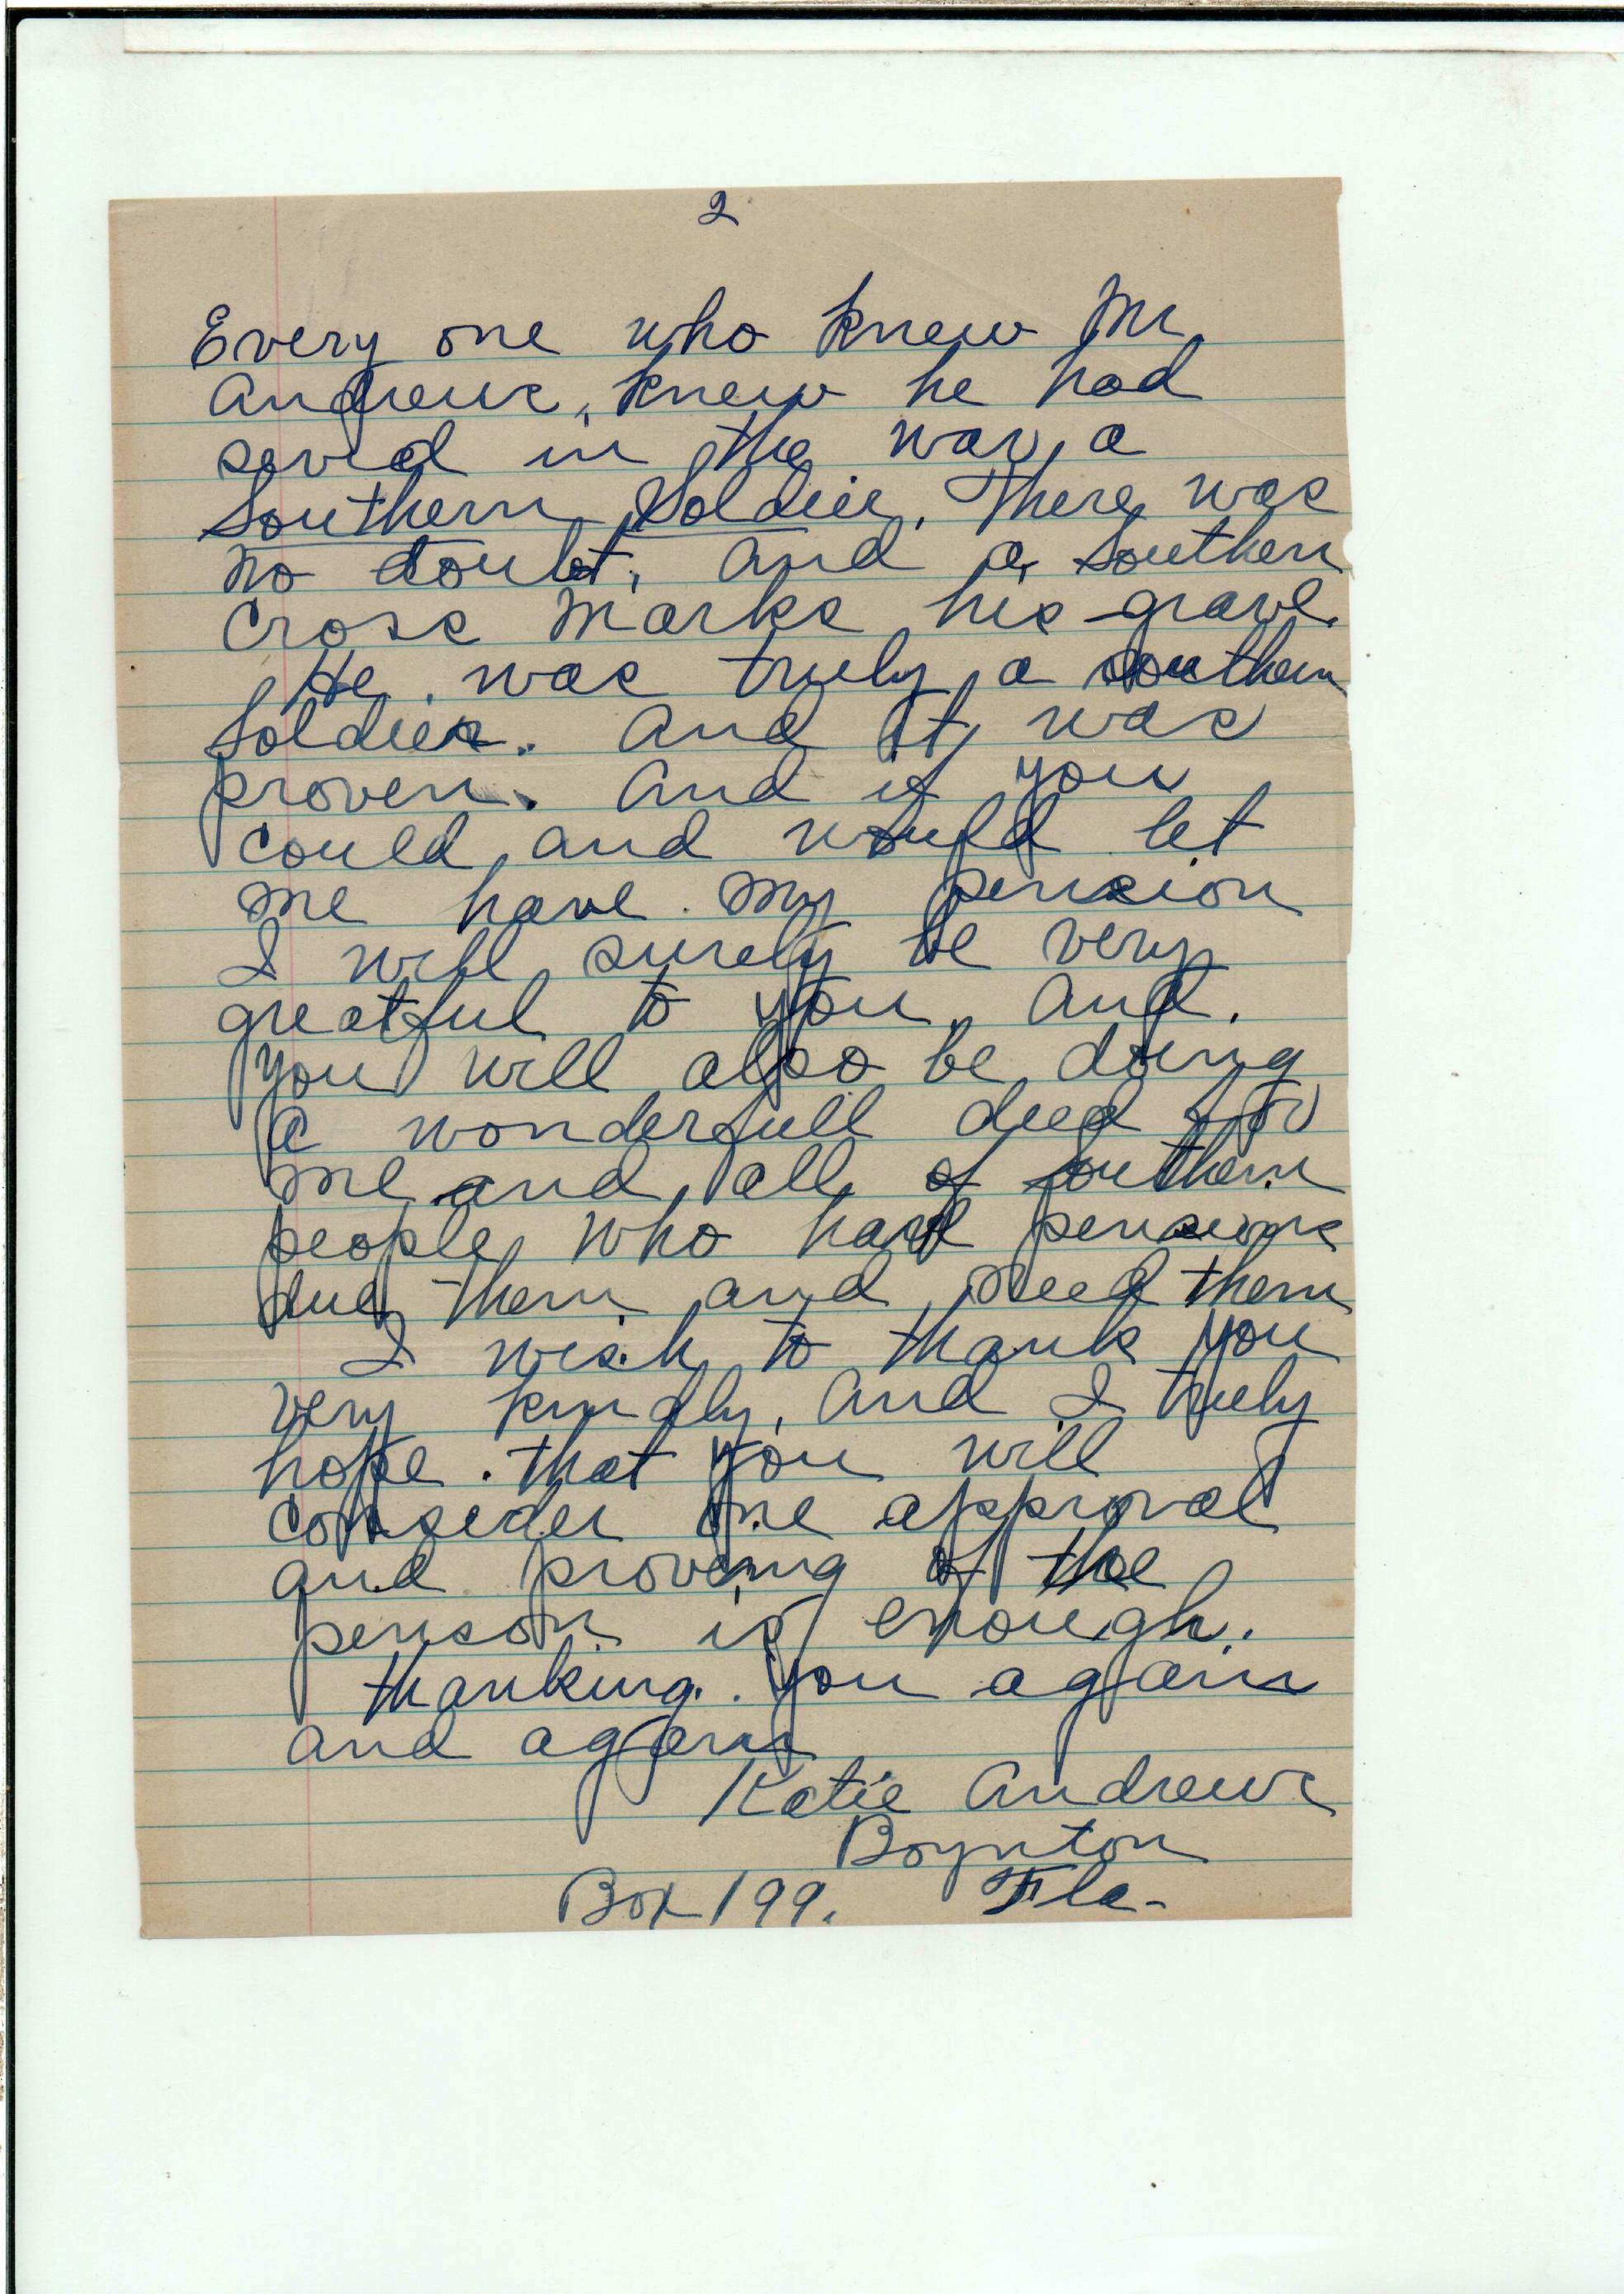 2
Every one who knew Mr
Andrews, knew he had
served in the war, a
Southern Soldier. There was
no doubt, and a Southern
Cross Marks his grave.
He was truely a southern
Soldier. And it was
proven. And if you
could, and would let
me have my pension
I will surely be very
greatful to you, And.
you will also be doing
a wonderfull deed for
me and all of southern
people, who have pensions
due them and need them
I wish to thank you
very kindly, and I truely
hope. that you will
consider one approval
and proveing of the
person is enough.
thanking. you again
and again
Katie Andrews
Boynton
Box 199. Fla-